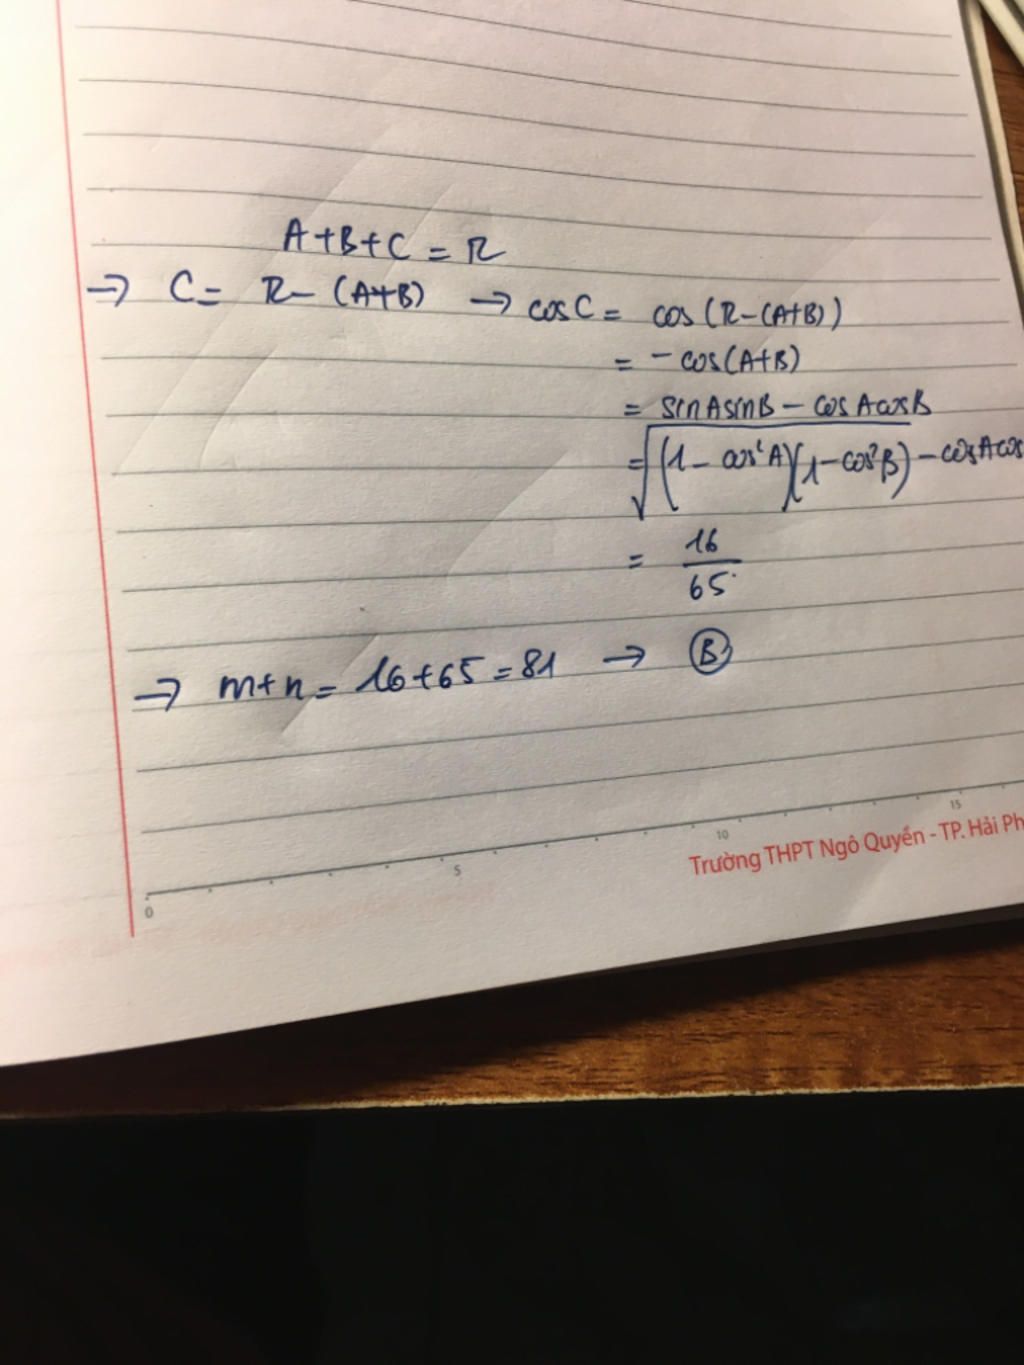 A+B+C = π
→ C = π - (A+B) → cosC = cos(π-(A+B))
= - cos(A+B)
= sinAsinB - cosAcosB
= √(1 - cos²A)(1-cos²B) - cosAcos
= 16/65
→ m+n = 16+65 = 81 → B
0 5 10 15
Trường THPT Ngô Quyền - TP. Hải Ph